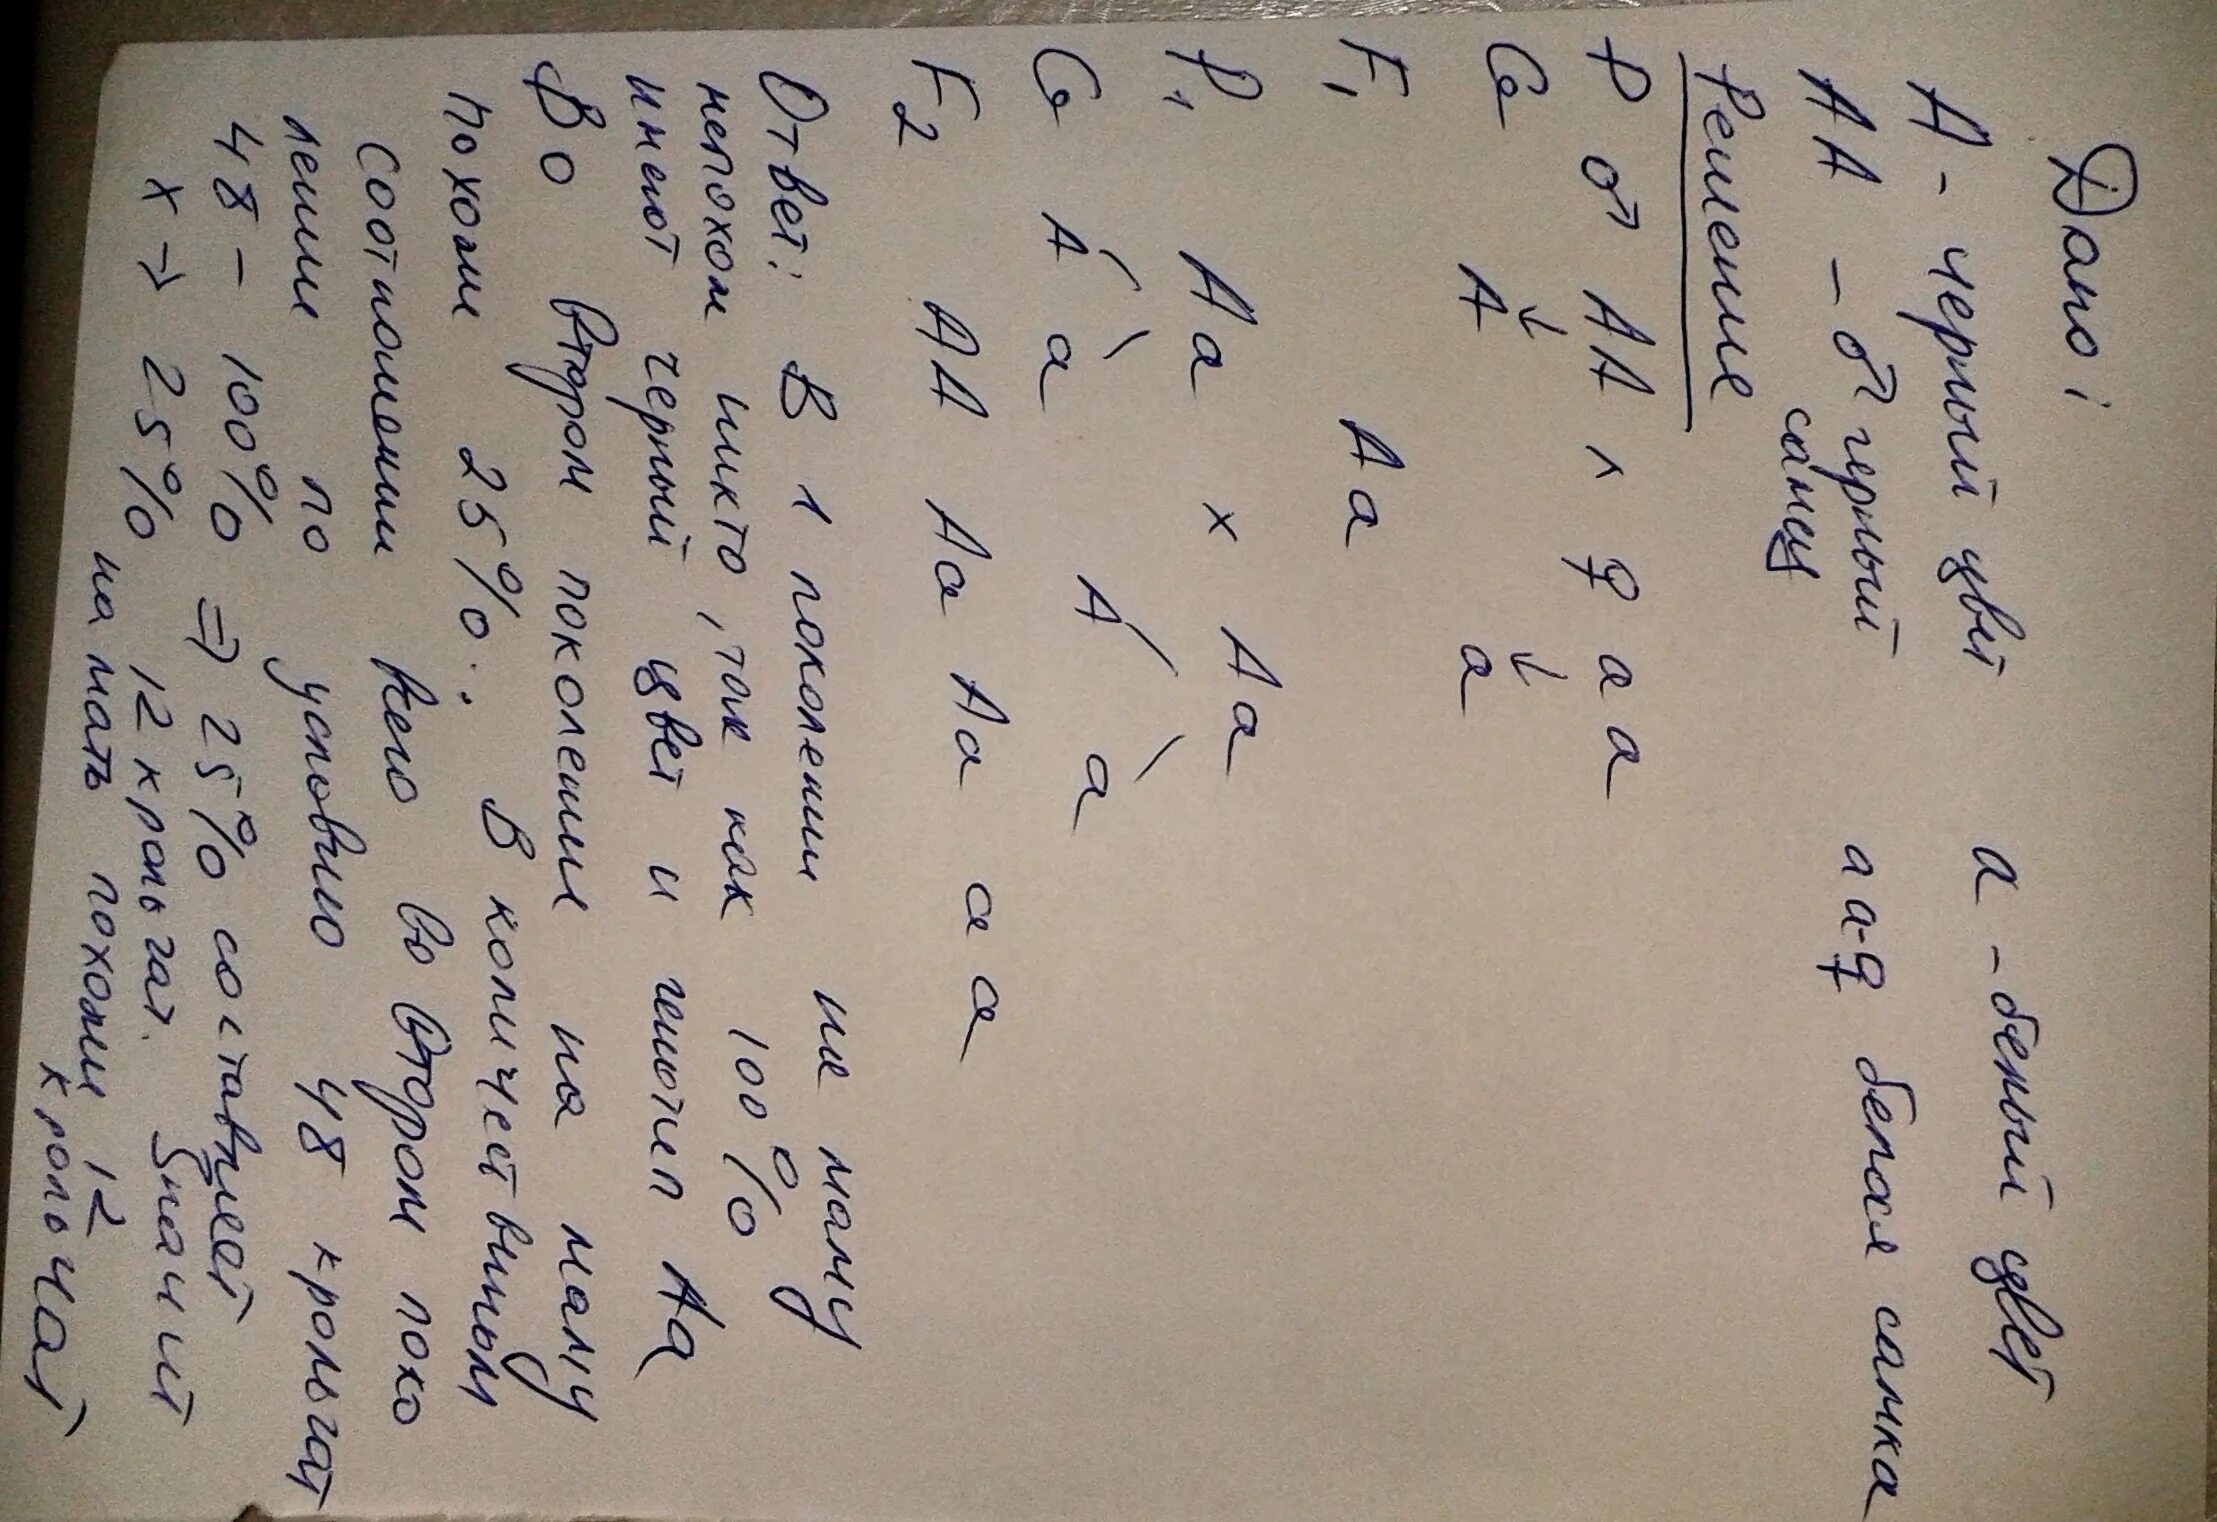 Дано:
А - черный цвет а - белый цвет
АА - ♂ черный самец аа - ♀ белая самка
Решение
Р ♂ АА х ♀ аа
G А а
F1 Аа
Р1 Аа х Аа
G А а А а
F2 АА Аа Аа аа
Ответ: В 1 поколении не маму
непохож никто, так как 100%
имеют черный цвет и генотип Аа
Во втором поколении на маму
похожи 25%. В количественном
соотношении Всего во втором поко
лении по условию 48 крольчат
48 - 100% ⇒ 25% составляет
х → 25% 12 крольчат. Значит
на мать похожи 12
крольчат